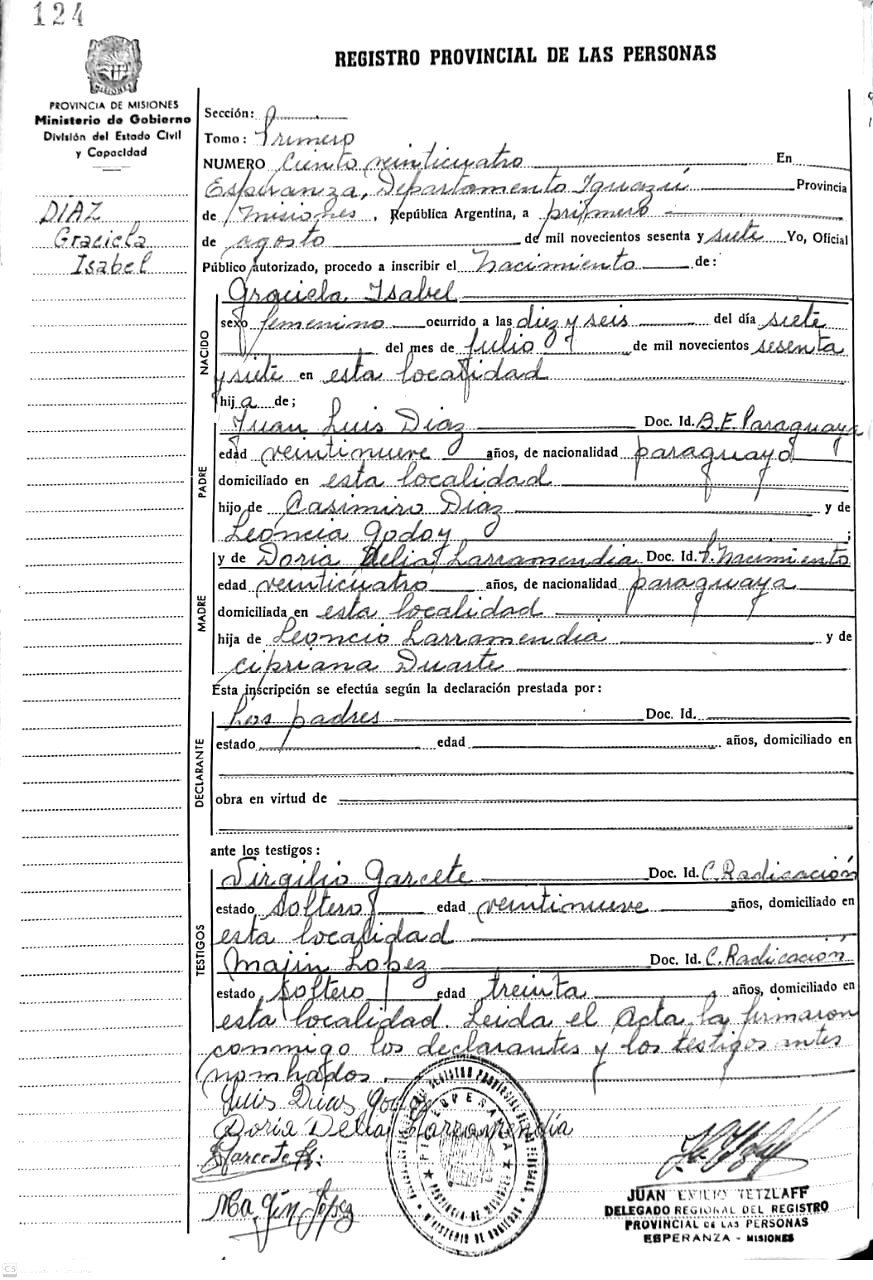 124
REGISTRO PROVINCIAL DE LAS PERSONAS
MISIONES
PROVINCIA DE MISIONES
Ministerio de Gobierno
División del Estado Civil
y Capacidad
DIAZ
Graciela
Isabel
Sección:
Tomo: Primero
NUMERO Ciento veinticuatro En
Esperanza, Departamento Iguazú Provincia
de Misiones, República Argentina, a primero
de agosto de mil novecientos sesenta y siete Yo, Oficial
Público autorizado, procedo a inscribir el nacimiento de:
NACIDO
Graciela Isabel
sexo femenino ocurrido a las diez y seis del día siete
del mes de Julio de mil novecientos sesenta
y siete en esta localidad
hija de;
PADRE
Juan Luis Diaz Doc. Id. B.E. Paraguaya
edad veintinueve años, de nacionalidad paraguayo
domiciliado en esta localidad
hijo de Casimiro Diaz y de
Leoncia Godoy ;
MADRE
y de Doria Delia Larramendia Doc. Id. P. Nacimiento
edad veinticuatro años, de nacionalidad paraguaya
domiciliada en esta localidad
hija de Leoncio Larramendia y de
Cipriana Duarte
Esta inscripción se efectúa según la declaración prestada por:
DECLARANTE
Los padres Doc. Id.
estado edad años, domiciliado en
obra en virtud de
ante los testigos:
TESTIGOS
Virgilio Garcete Doc. Id. C. Radicación
estado Soltero edad veintinueve años, domiciliado en
esta localidad
Majin Lopez Doc. Id. C. Radicación
estado Soltero edad treinta años, domiciliado en
esta localidad. Leida el Acta, la firmaron
conmigo los declarantes y los testigos antes
nombrados.
Luis Dias Godoy
Doria Delia Larramendía
Garcete
Magín López
REGISTRO PROVINCIAL
PROVINCIA DE MISIONES
MINISTERIO DE GOBIERNO
JUAN EMILIO TETZLAFF
DELEGADO REGIONAL DEL REGISTRO
PROVINCIAL DE LAS PERSONAS
ESPERANZA - MISIONES
CS